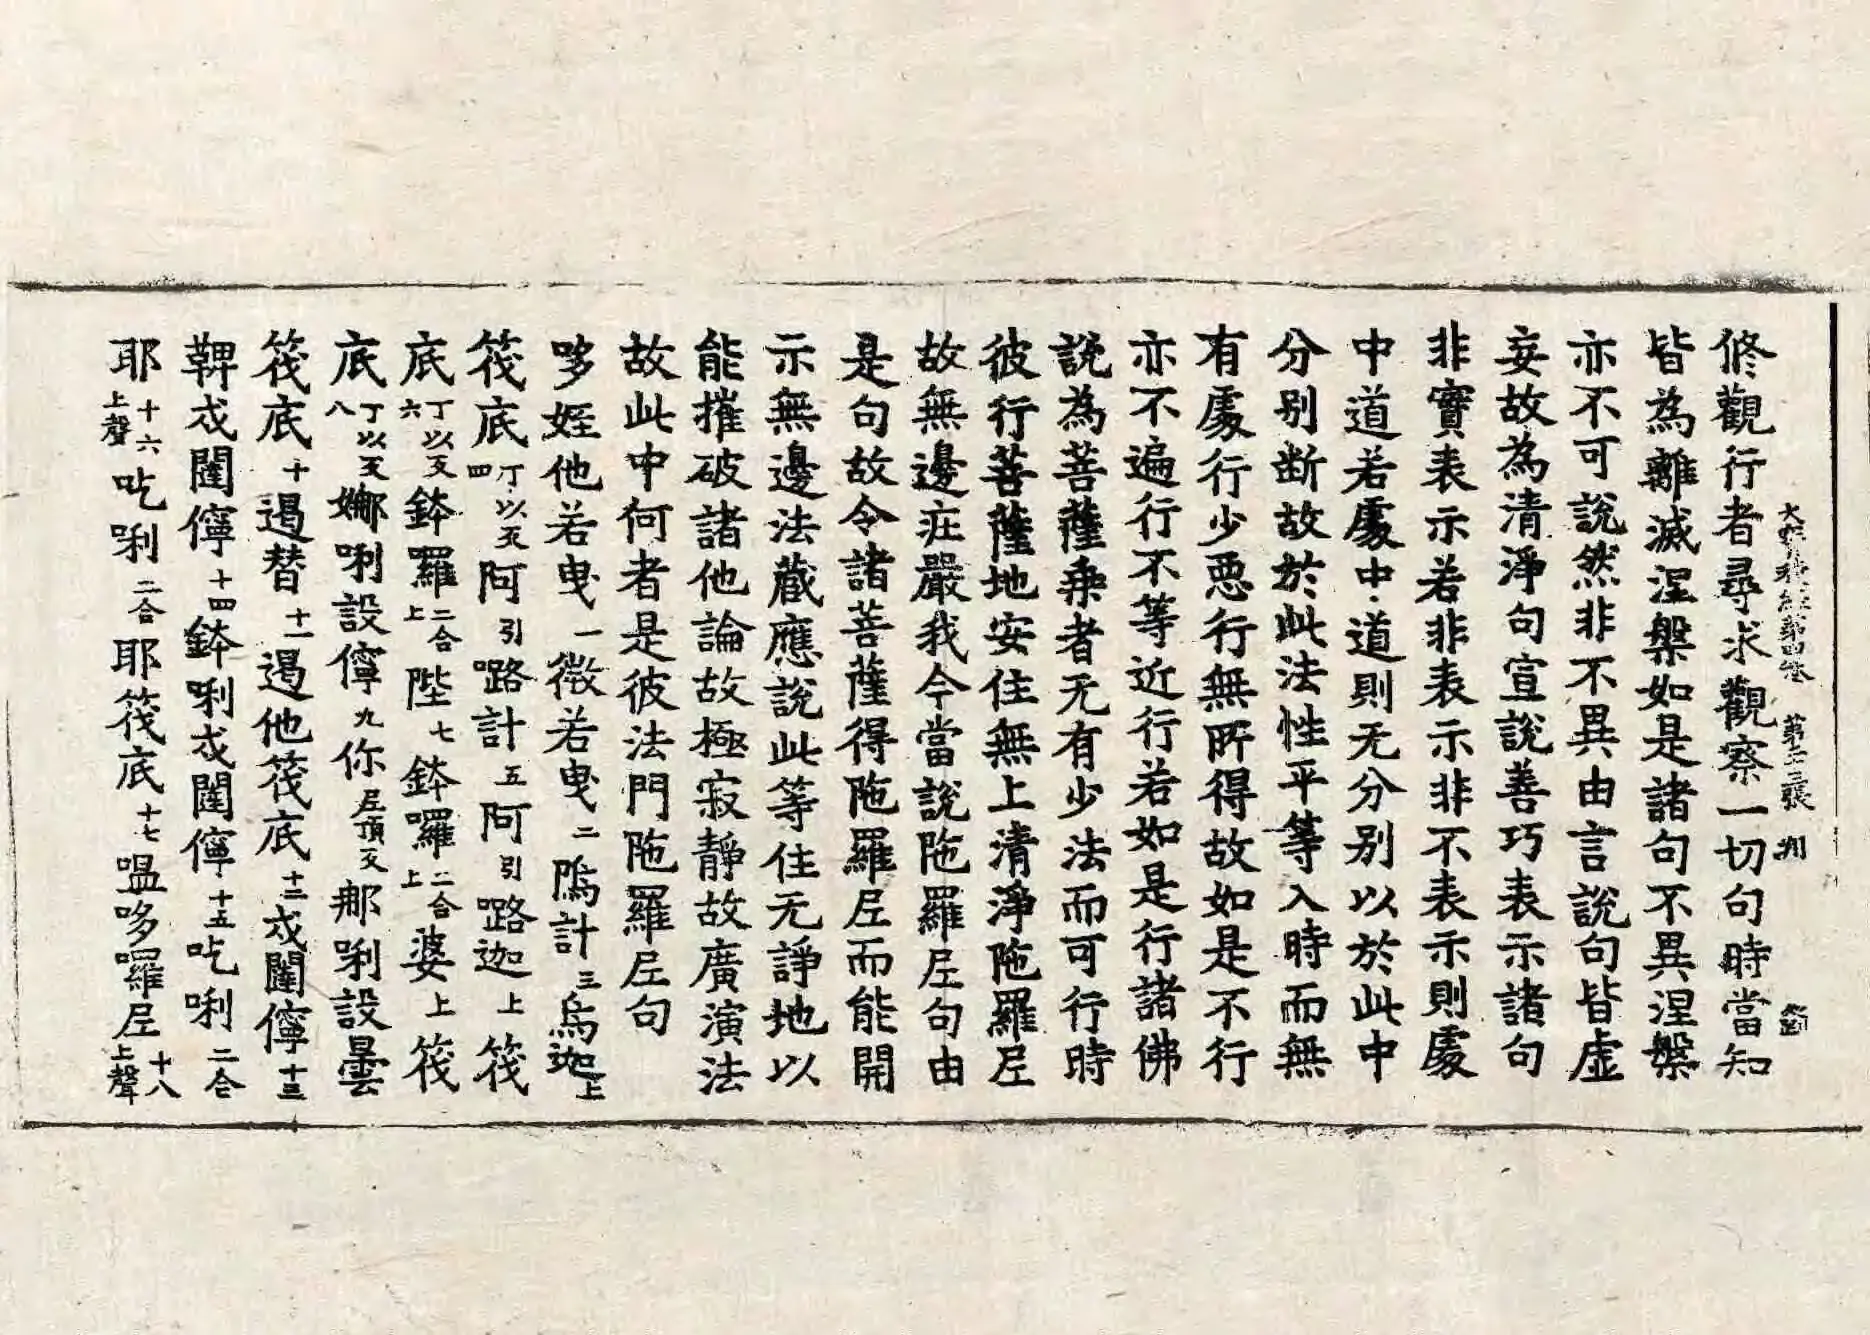 大寶積經第四卷 第十二張 翔
修觀行者尋求觀察一切句時當知
皆為離滅涅槃如是諸句不異涅槃
亦不可說然非不異由言說句皆虛
妄故為清淨句宣說善巧表示諸句
非實表示若非表示非不表示則處
中道若處中道則无分別以於此中
分別断故於此法性平等入時而無
有處行少惡行無所得故如是不行
亦不遍行不等近行若如是行諸佛
說為菩薩乘者无有少法而可行時
彼行菩薩地安住無上清淨陁羅尼
故無邊莊嚴我今當說陁羅尼句由
是句故令諸菩薩得陁羅尼而能開
示無邊法藏應說此等住无諍地以
能摧破諸他論故極寂靜故廣演法
故此中何者是彼法門陁羅尼句
哆姪他若曳一微若曳二隖計三烏迦上
筏底丁以反四阿引㗚計五阿引㗚迦上筏
底丁以反六鉢囉二合上陛七鉢囉二合上婆上筏
底丁以反八娜唎設儜九你尼頂反那唎設曇
筏底十遏替十一遏他筏底十二戍闍儜十三
鞞戍闍儜十四鉢唎戍闍儜十五吃唎二合
耶十六上聲吃唎二合耶筏底十七嗢哆囉尼十八上聲